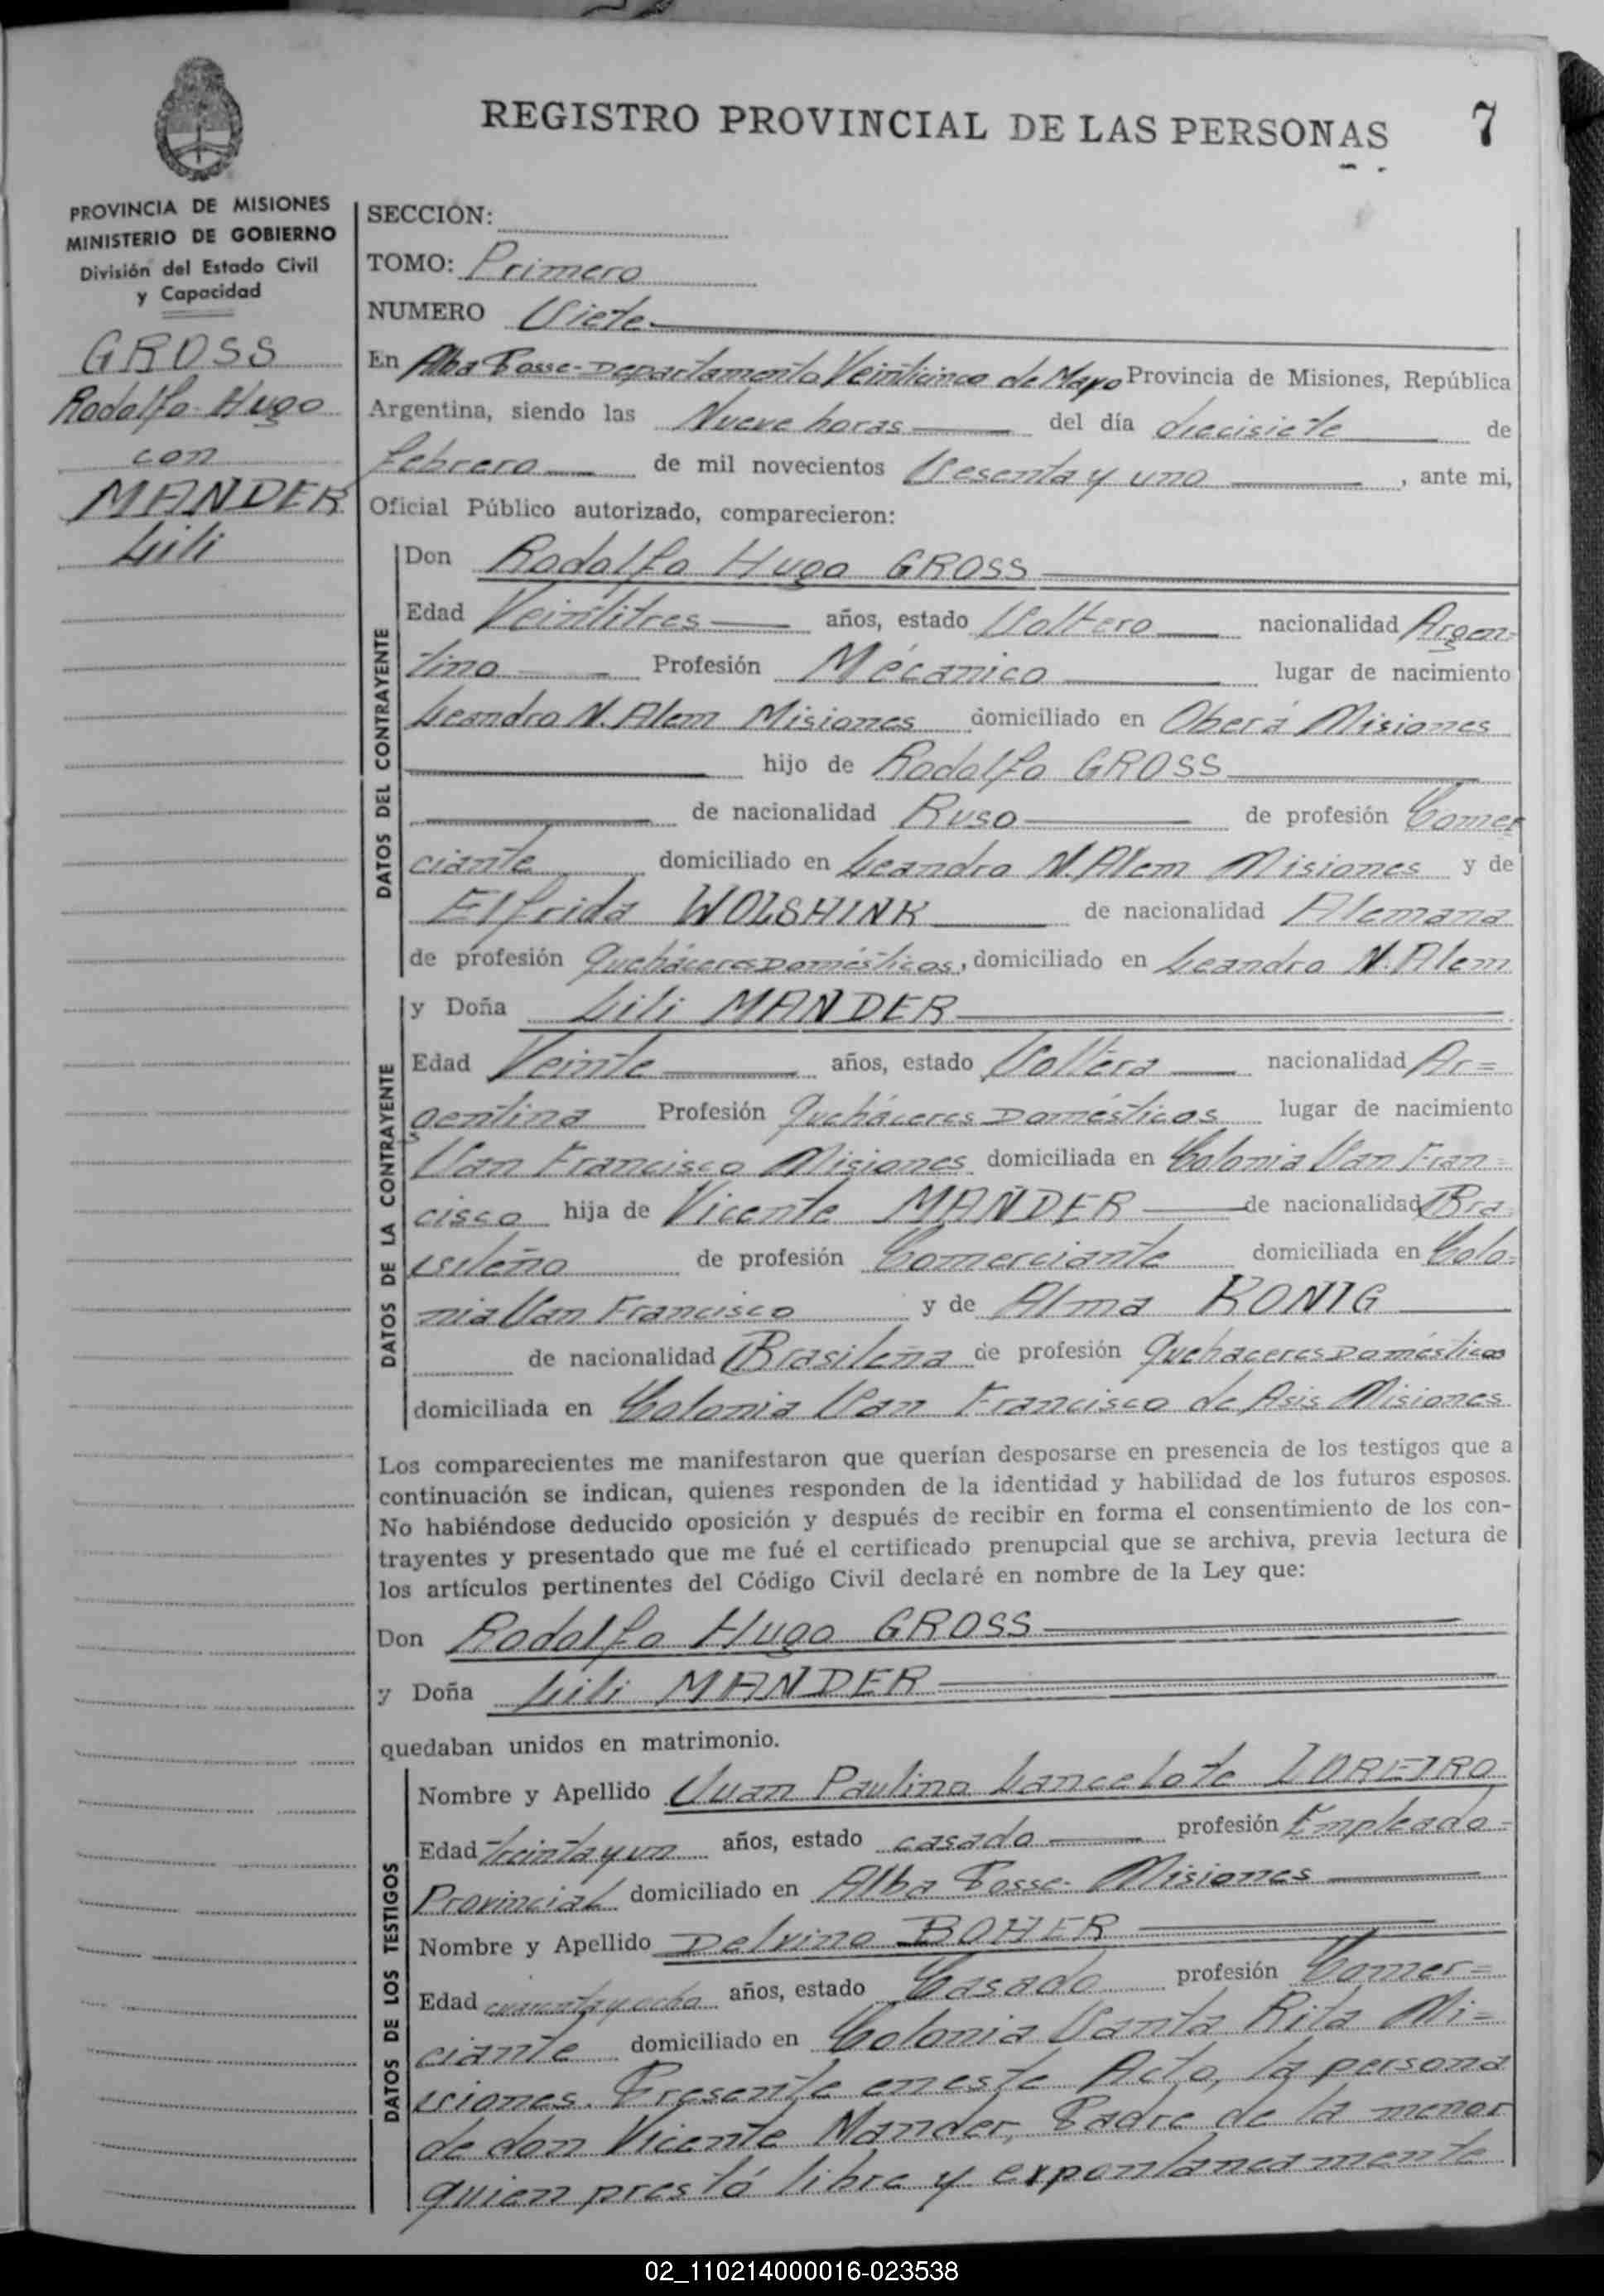 REGISTRO PROVINCIAL DE LAS PERSONAS 7
PROVINCIA DE MISIONES
MINISTERIO DE GOBIERNO
División del Estado Civil
y Capacidad
GROSS
Rodolfo Hugo
con
MANDER
Lili
SECCION:
TOMO: Primero
NUMERO Siete
En Alba Posse-Departamento Veinticinco de Mayo Provincia de Misiones, República
Argentina, siendo las Nueve horas del día diecisiete de
febrero de mil novecientos Sesenta y uno, ante mi,
Oficial Público autorizado, comparecieron:
DATOS DEL CONTRAYENTE
Don Rodolfo Hugo GROSS
Edad Veintitres años, estado Soltero nacionalidad Argen=
tino Profesión Mécanico lugar de nacimiento
Leandro N. Alem Misiones domiciliado en Oberá Misiones
hijo de Rodolfo GROSS
de nacionalidad Ruso de profesión Comer
ciante domiciliado en Leandro N. Alem Misiones y de
Elfrida WOLSHINK de nacionalidad Alemana
de profesión Queháceres Domésticos, domiciliado en Leandro N. Alem
DATOS DE LA CONTRAYENTE
y Doña Lili MANDER
Edad Veinte años, estado Soltera nacionalidad Ar=
gentina Profesión Queháceres Domésticos lugar de nacimiento
San Francisco Misiones domiciliada en Colonia San Fran=
cisco hija de Vicente MANDER de nacionalidad Bra
sileño de profesión Comerciante domiciliada en Colo=
nia San Francisco y de Alma KONIG
de nacionalidad Brasileña de profesión Quehaceres Domésticos
domiciliada en Colonia San Francisco de Asis Misiones
Los comparecientes me manifestaron que querían desposarse en presencia de los testigos que a
continuación se indican, quienes responden de la identidad y habilidad de los futuros esposos.
No habiéndose deducido oposición y después de recibir en forma el consentimiento de los con-
trayentes y presentado que me fué el certificado prenupcial que se archiva, previa lectura de
los artículos pertinentes del Código Civil declaré en nombre de la Ley que:
Don Rodolfo Hugo GROSS
y Doña Lili MANDER
quedaban unidos en matrimonio.
DATOS DE LOS TESTIGOS
Nombre y Apellido Juan Paulino Lancelote LOREIRO
Edad treinta y un años, estado casado profesión Empleado=
Provincial domiciliado en Alba Posse- Misiones
Nombre y Apellido Delvino BOHER
Edad cuarenta y ocho años, estado Casado profesión Comer=
ciante domiciliado en Colonia Santa Rita Mi=
siones. Presente en este Acto, la persona
de don Vicente Mander, Padre de la menor
quien prestó libre y expontaneamente
02_110214000016-023538